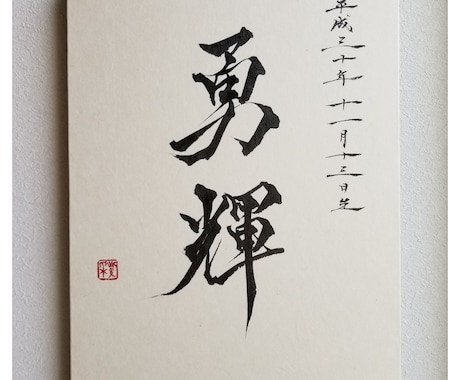 平成三十年十一月十三日生
勇輝